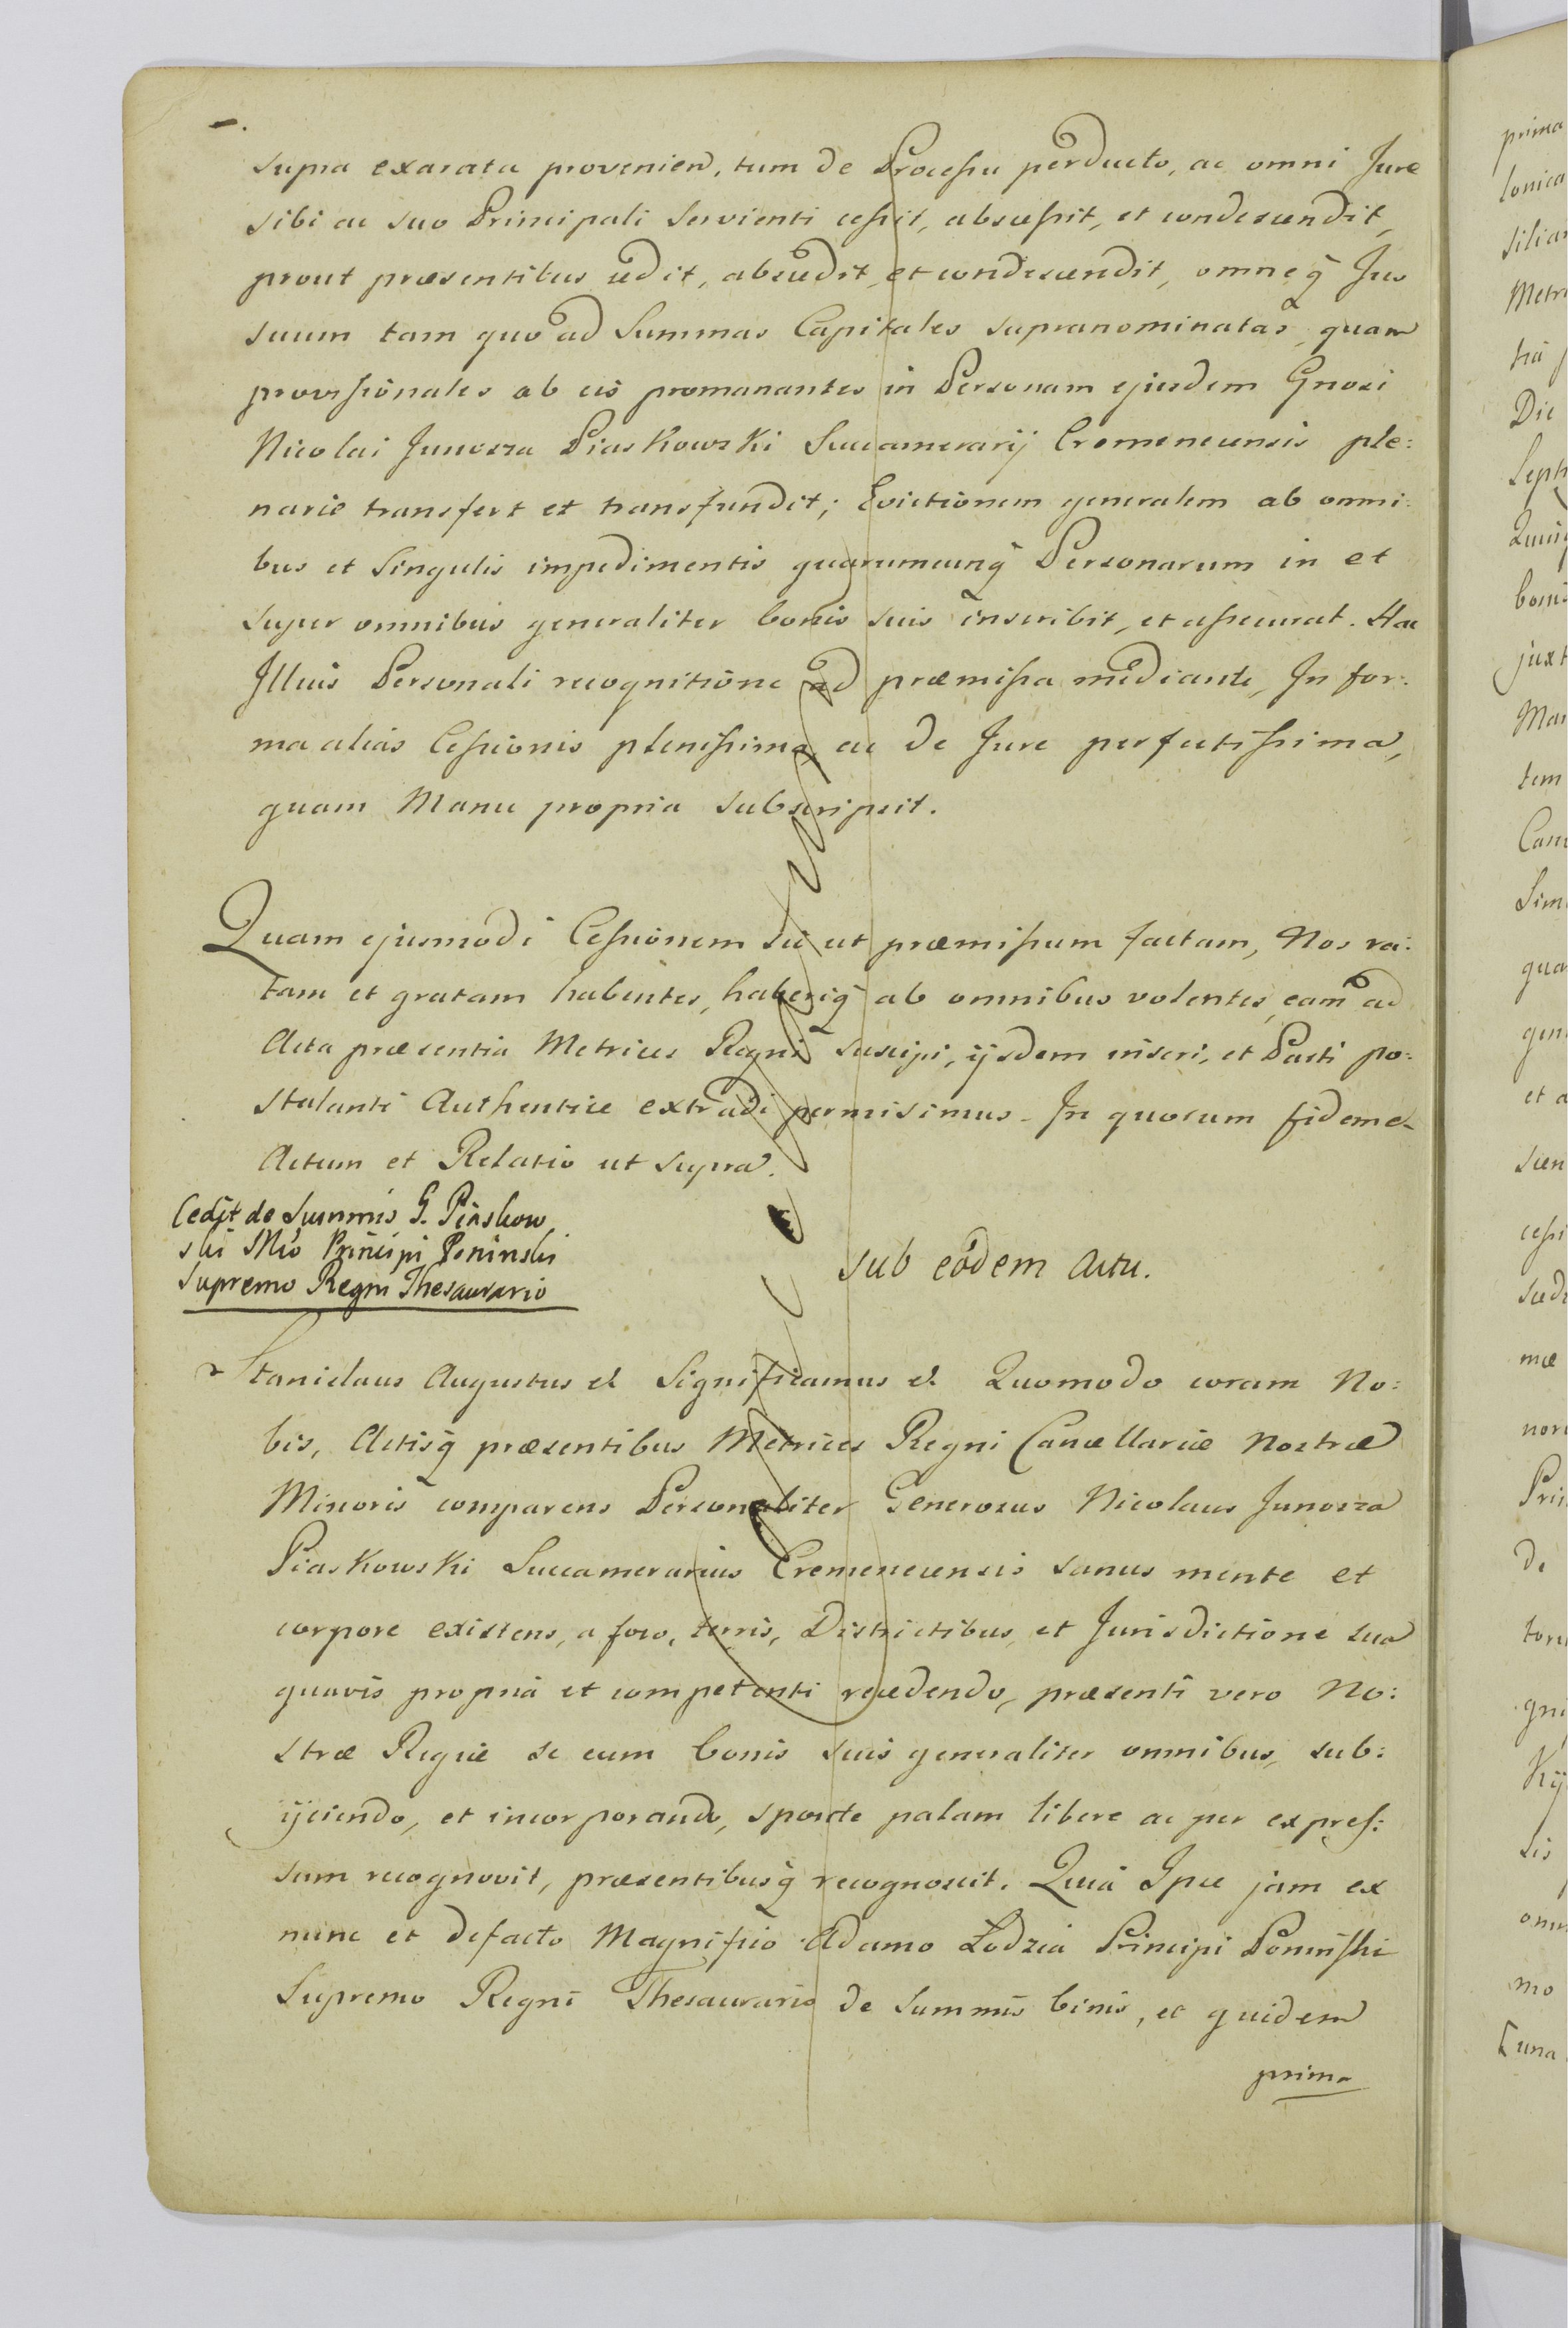 supra exarata provenien, tum de Processu perducto, ac omni Jure
sibi ac suo Principali servienti cessit, abscessit, et condescendit,
prout præsentibus cedit, abscedit, et condescendit, omneq̃ Jus
suum tam quo ad Summas Capitales supranominatas, quam
provisionales ab eis promanantes in Personam ejusdem Gnosi
Nicolai Junosza Piaskowski Succamerarij Cremenecensis ple:
narie transfert et transfundit; Evictionem generalem ab omni:
bus et Singulis impedimentis quarumcunq̃ Personarum in et
super omnibus generaliter bonis suis inscribit, et assecurat. Hac
Illius Personali recognitione ad præmissa mediante, In for:
ma alias Cessionis plenissima ac de Jure perfectissima,
quam Manu propria subscripsit.
Quam ejusmodi Cessionem sic ut præmissum factam, Nos ra:
tam et gratam habentes, haberiq̃ ab omnibus volentes, eam ad
Acta præsentia Metrices Regni suscipi, ijsdem inseri, et Parti po:
stulanti Authentice extradi permisimus. In quorum fidem et
Actum et Relatio ut supra.
Cedit de Summis G. Piaskow
ski Mco Principi Poninski
Supremo Regni Thesaurario
sub eodem Actu.
Stanislaus Augustus et Significamus et Quomodo coram No:
bis, Actisq̃ præsentibus Metrices Regni Cancellariæ Nostræ
Minoris comparens Personaliter Generosus Nicolaus Junosza
Piaskowski Succamerarius Cremenecensis sanus mente et
corpore existens, a foro, terris, Districtibus, et Jurisdictione sua
quavis propria et competenti recedendo, præsenti vero No:
stræ Regiæ se cum bonis suis generaliter omnibus, sub:
ijciendo, et incorporando, sponte palam libere ac per expres:
sum recognovit, præsentibusq̃ recognoscit. Quia Ipse jam ex
nunc et defacto Magnifico Adamo Łodzia Principi Poninski
Supremo Regni Thesaurario de Summis binis, et quidem
prima